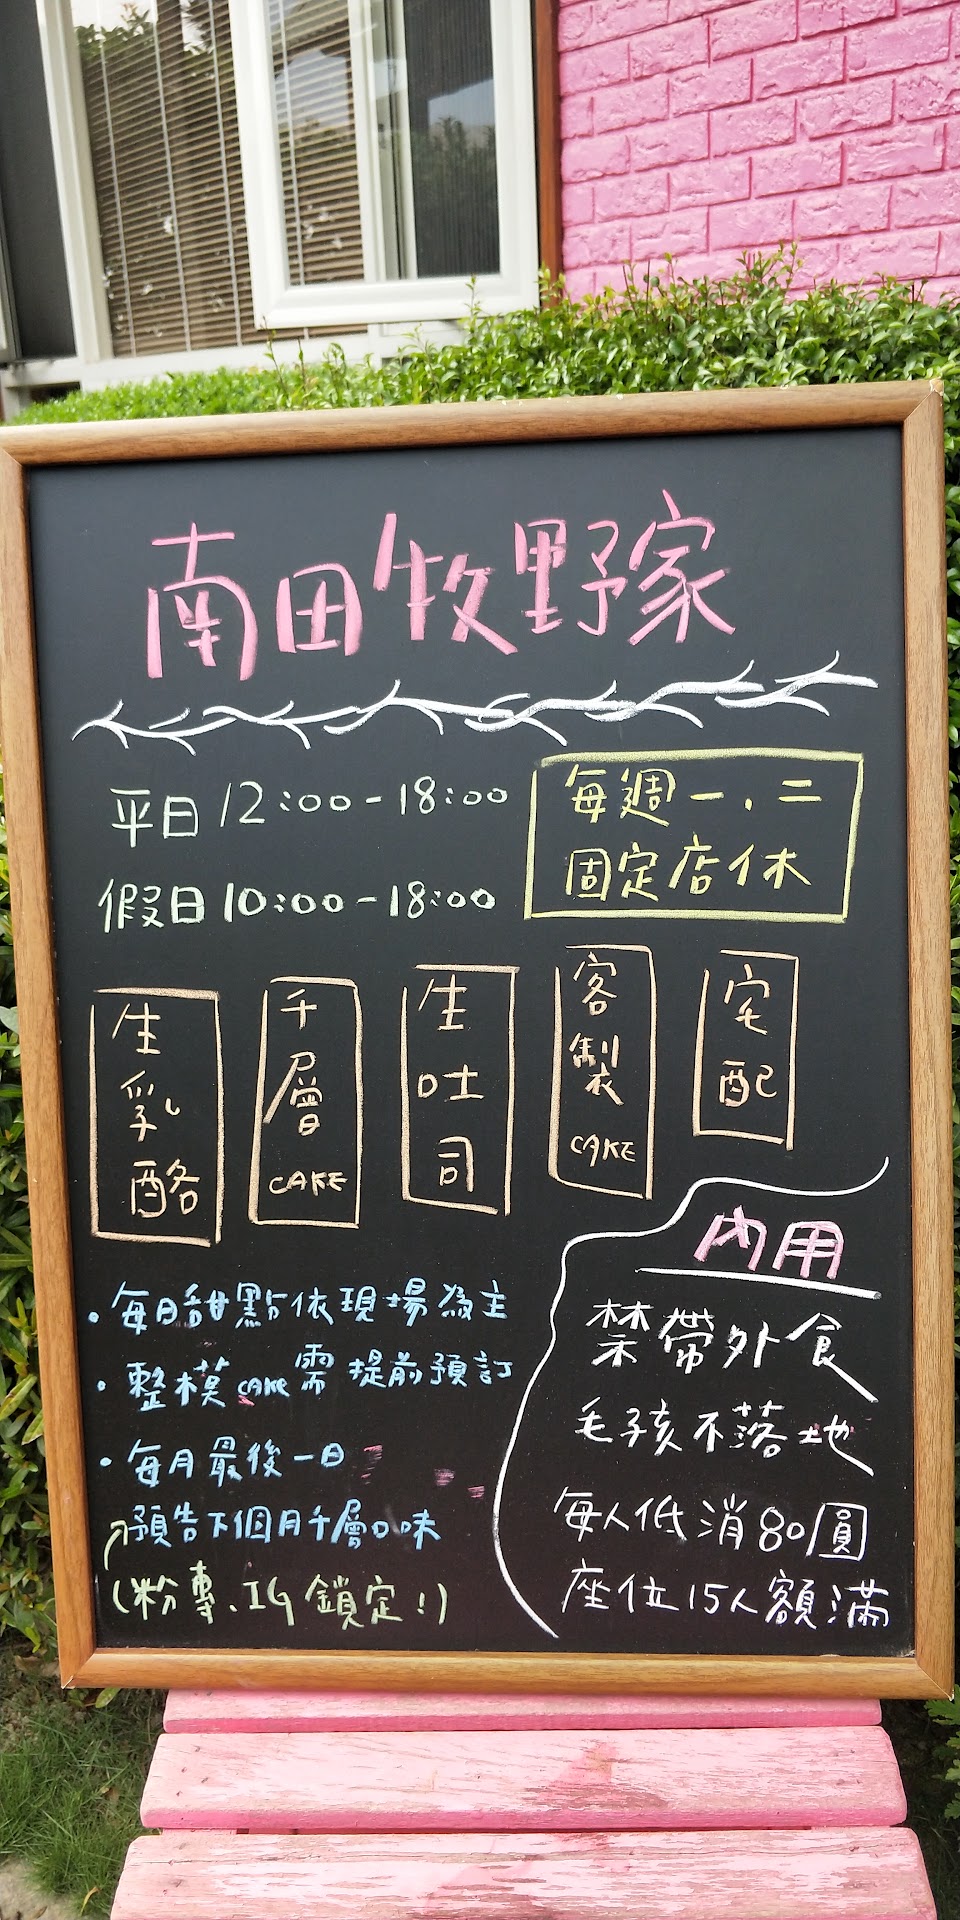 南田牧野家
平日12:00-18:00
每週一、二
固定店休
假日10:00-18:00
生乳酪
千層CAKE
生吐司
客製CAKE
宅配
•每日甜點依現場為主
•整模CAKE需提前預訂
•每月最後一日
預告下個月千層口味
(粉專、IG鎖定!)
內用
禁帶外食
毛孩不落地
每人低消80圓
座位15人額滿